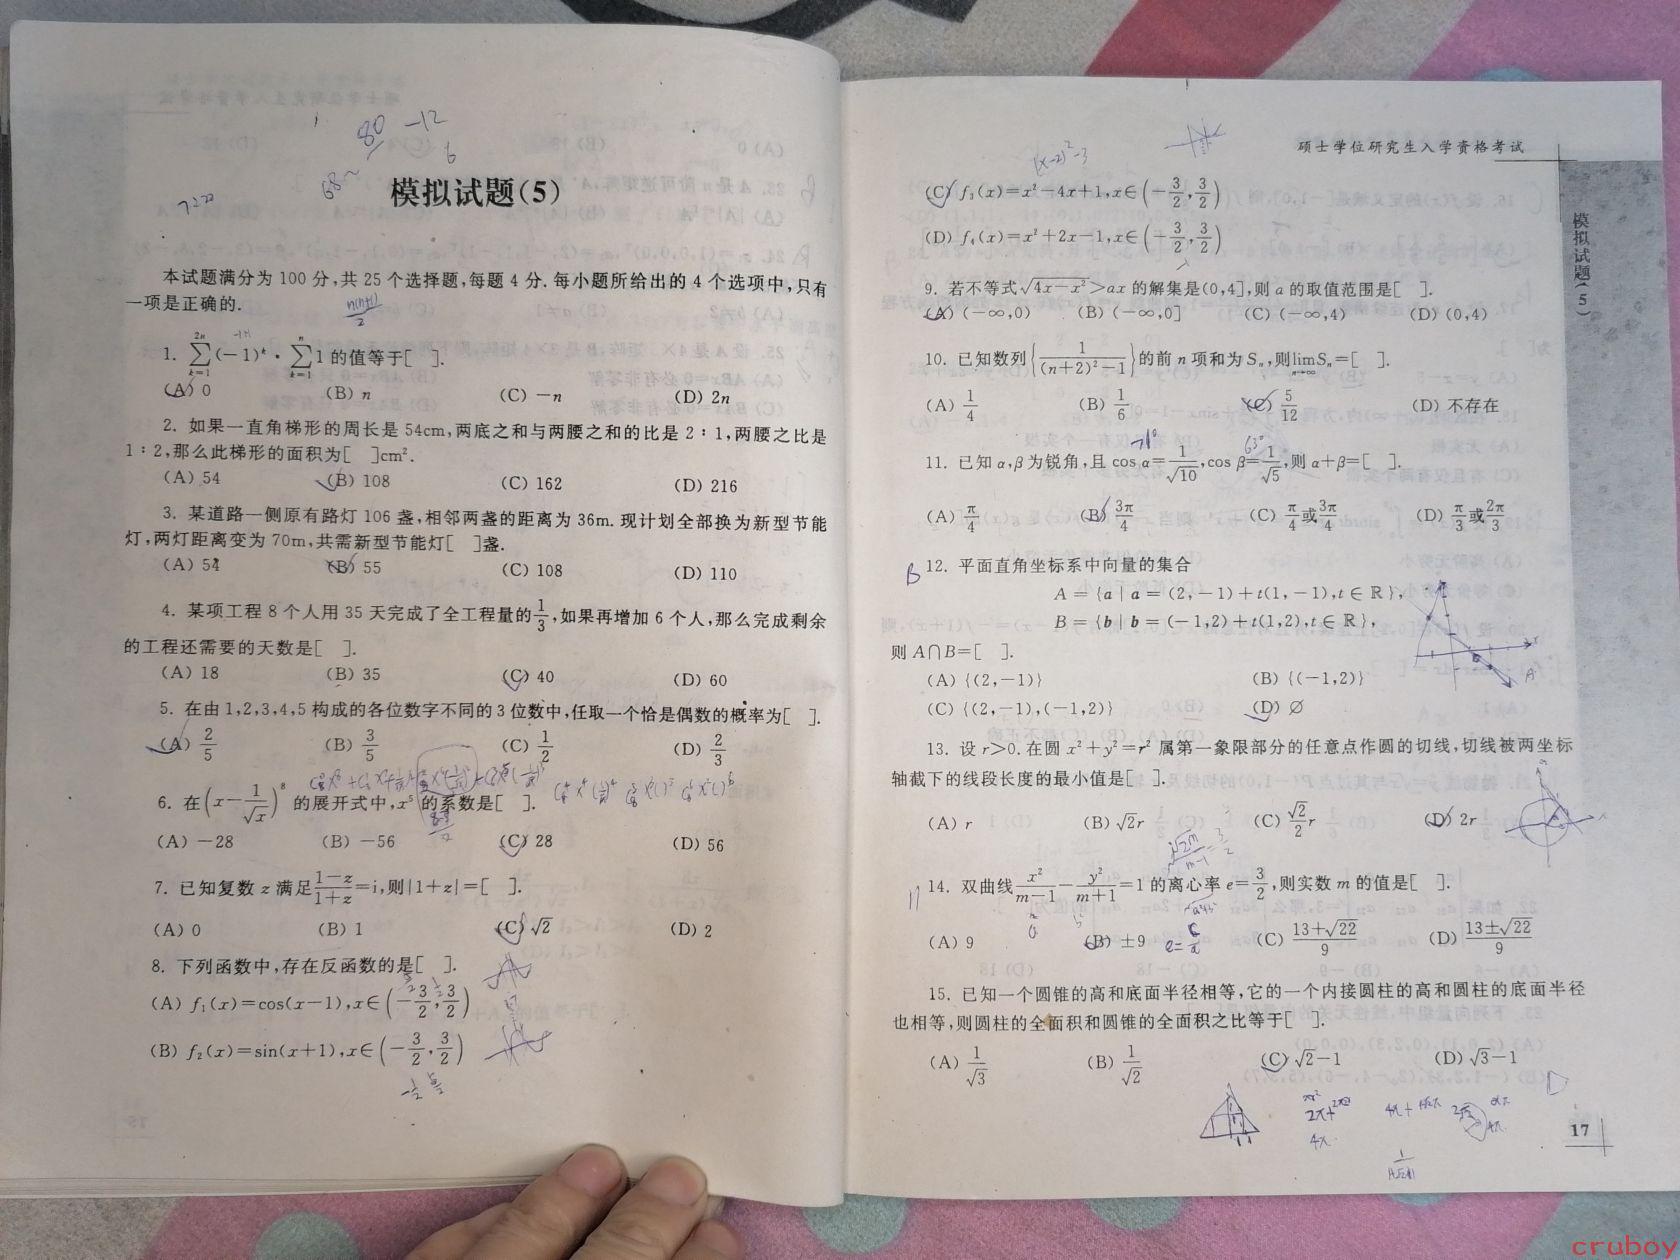 80 -12
6
68~
模拟试题(5)
本试题满分为 100 分,共 25 个选择题,每题 4 分.每小题所给出的 4 个选项中,只有
一项是正确的.
n(n+1)/2
1. \sum_{k=1}^{2n}(-1)^k · \sum_{k=1}^{n}1 的值等于[ ].
(A) 0 (B) n (C) -n (D) 2n
2. 如果一直角梯形的周长是 54cm,两底之和与两腰之和的比是 2∶1,两腰之比是
1∶2,那么此梯形的面积为[ ]cm².
(A) 54 (B) 108 (C) 162 (D) 216
3. 某道路一侧原有路灯 106 盏,相邻两盏的距离为 36m. 现计划全部换为新型节能
灯,两灯距离变为 70m,共需新型节能灯[ ]盏.
(A) 54 (B) 55 (C) 108 (D) 110
4. 某项工程 8 个人用 35 天完成了全工程量的1/3,如果再增加 6 个人,那么完成剩余
的工程还需要的天数是[ ].
(A) 18 (B) 35 (C) 40 (D) 60
5. 在由 1,2,3,4,5 构成的各位数字不同的 3 位数中,任取一个恰是偶数的概率为[ ].
(A) 2/5 (B) 3/5 (C) 1/2 (D) 2/3
6. 在(x-1/√x)⁸ 的展开式中,x⁵ 的系数是[ ].
(A) -28 (B) -56 (C) 28 (D) 56
7. 已知复数 z 满足(1-z)/(1+z)=i,则|1+z|=[ ].
(A) 0 (B) 1 (C) √2 (D) 2
8. 下列函数中,存在反函数的是[ ].
(A) f₁(x)=cos(x-1),x∈(-3/2,3/2)
(B) f₂(x)=sin(x+1),x∈(-3/2,3/2)
硕士学位研究生入学资格考试
模拟试题(5)
(x-2)²-3
(C) f₃(x)=x²-4x+1,x∈(-3/2,3/2)
(D) f₄(x)=x²+2x-1,x∈(-3/2,3/2)
9. 若不等式√(4x-x²)>ax 的解集是(0,4],则 a 的取值范围是[ ].
(A) (-∞,0) (B) (-∞,0] (C) (-∞,4) (D) (0,4)
10. 已知数列{1/((n+2)²-1)}的前 n 项和为 Sₙ,则lim_{n→∞}Sₙ=[ ].
(A) 1/4 (B) 1/6 (C) 5/12 (D) 不存在
71° 63°
11. 已知 α,β 为锐角,且 cos α=1/√10,cos β=1/√5,则 α+β=[ ].
(A) π/4 (B) 3π/4 (C) π/4或3π/4 (D) π/3或2π/3
B 12. 平面直角坐标系中向量的集合
A = {a | a = (2,-1)+t(1,-1),t ∈ R},
B = {b | b = (-1,2)+t(1,2),t ∈ R},
则 A∩B=[ ].
(A) {(2,-1)} (B) {(-1,2)}
(C) {(2,-1),(-1,2)} (D) ∅
13. 设 r>0.在圆 x²+y²=r² 属第一象限部分的任意点作圆的切线,切线被两坐标
轴截下的线段长度的最小值是[ ].
(A) r (B) √2r (C) √2/2 r (D) 2r
14. 双曲线x²/(m-1)-y²/(m+1)=1 的离心率 e=3/2,则实数 m 的值是[ ].
(A) 9 (B) ±9 (C) (13+√22)/9 (D) (13±√22)/9
e=c/a
15. 已知一个圆锥的高和底面半径相等,它的一个内接圆柱的高和圆柱的底面半径
也相等,则圆柱的全面积和圆锥的全面积之比等于[ ].
(A) 1/√3 (B) 1/√2 (C) √2-1 (D) √3-1
D
17
cruboy